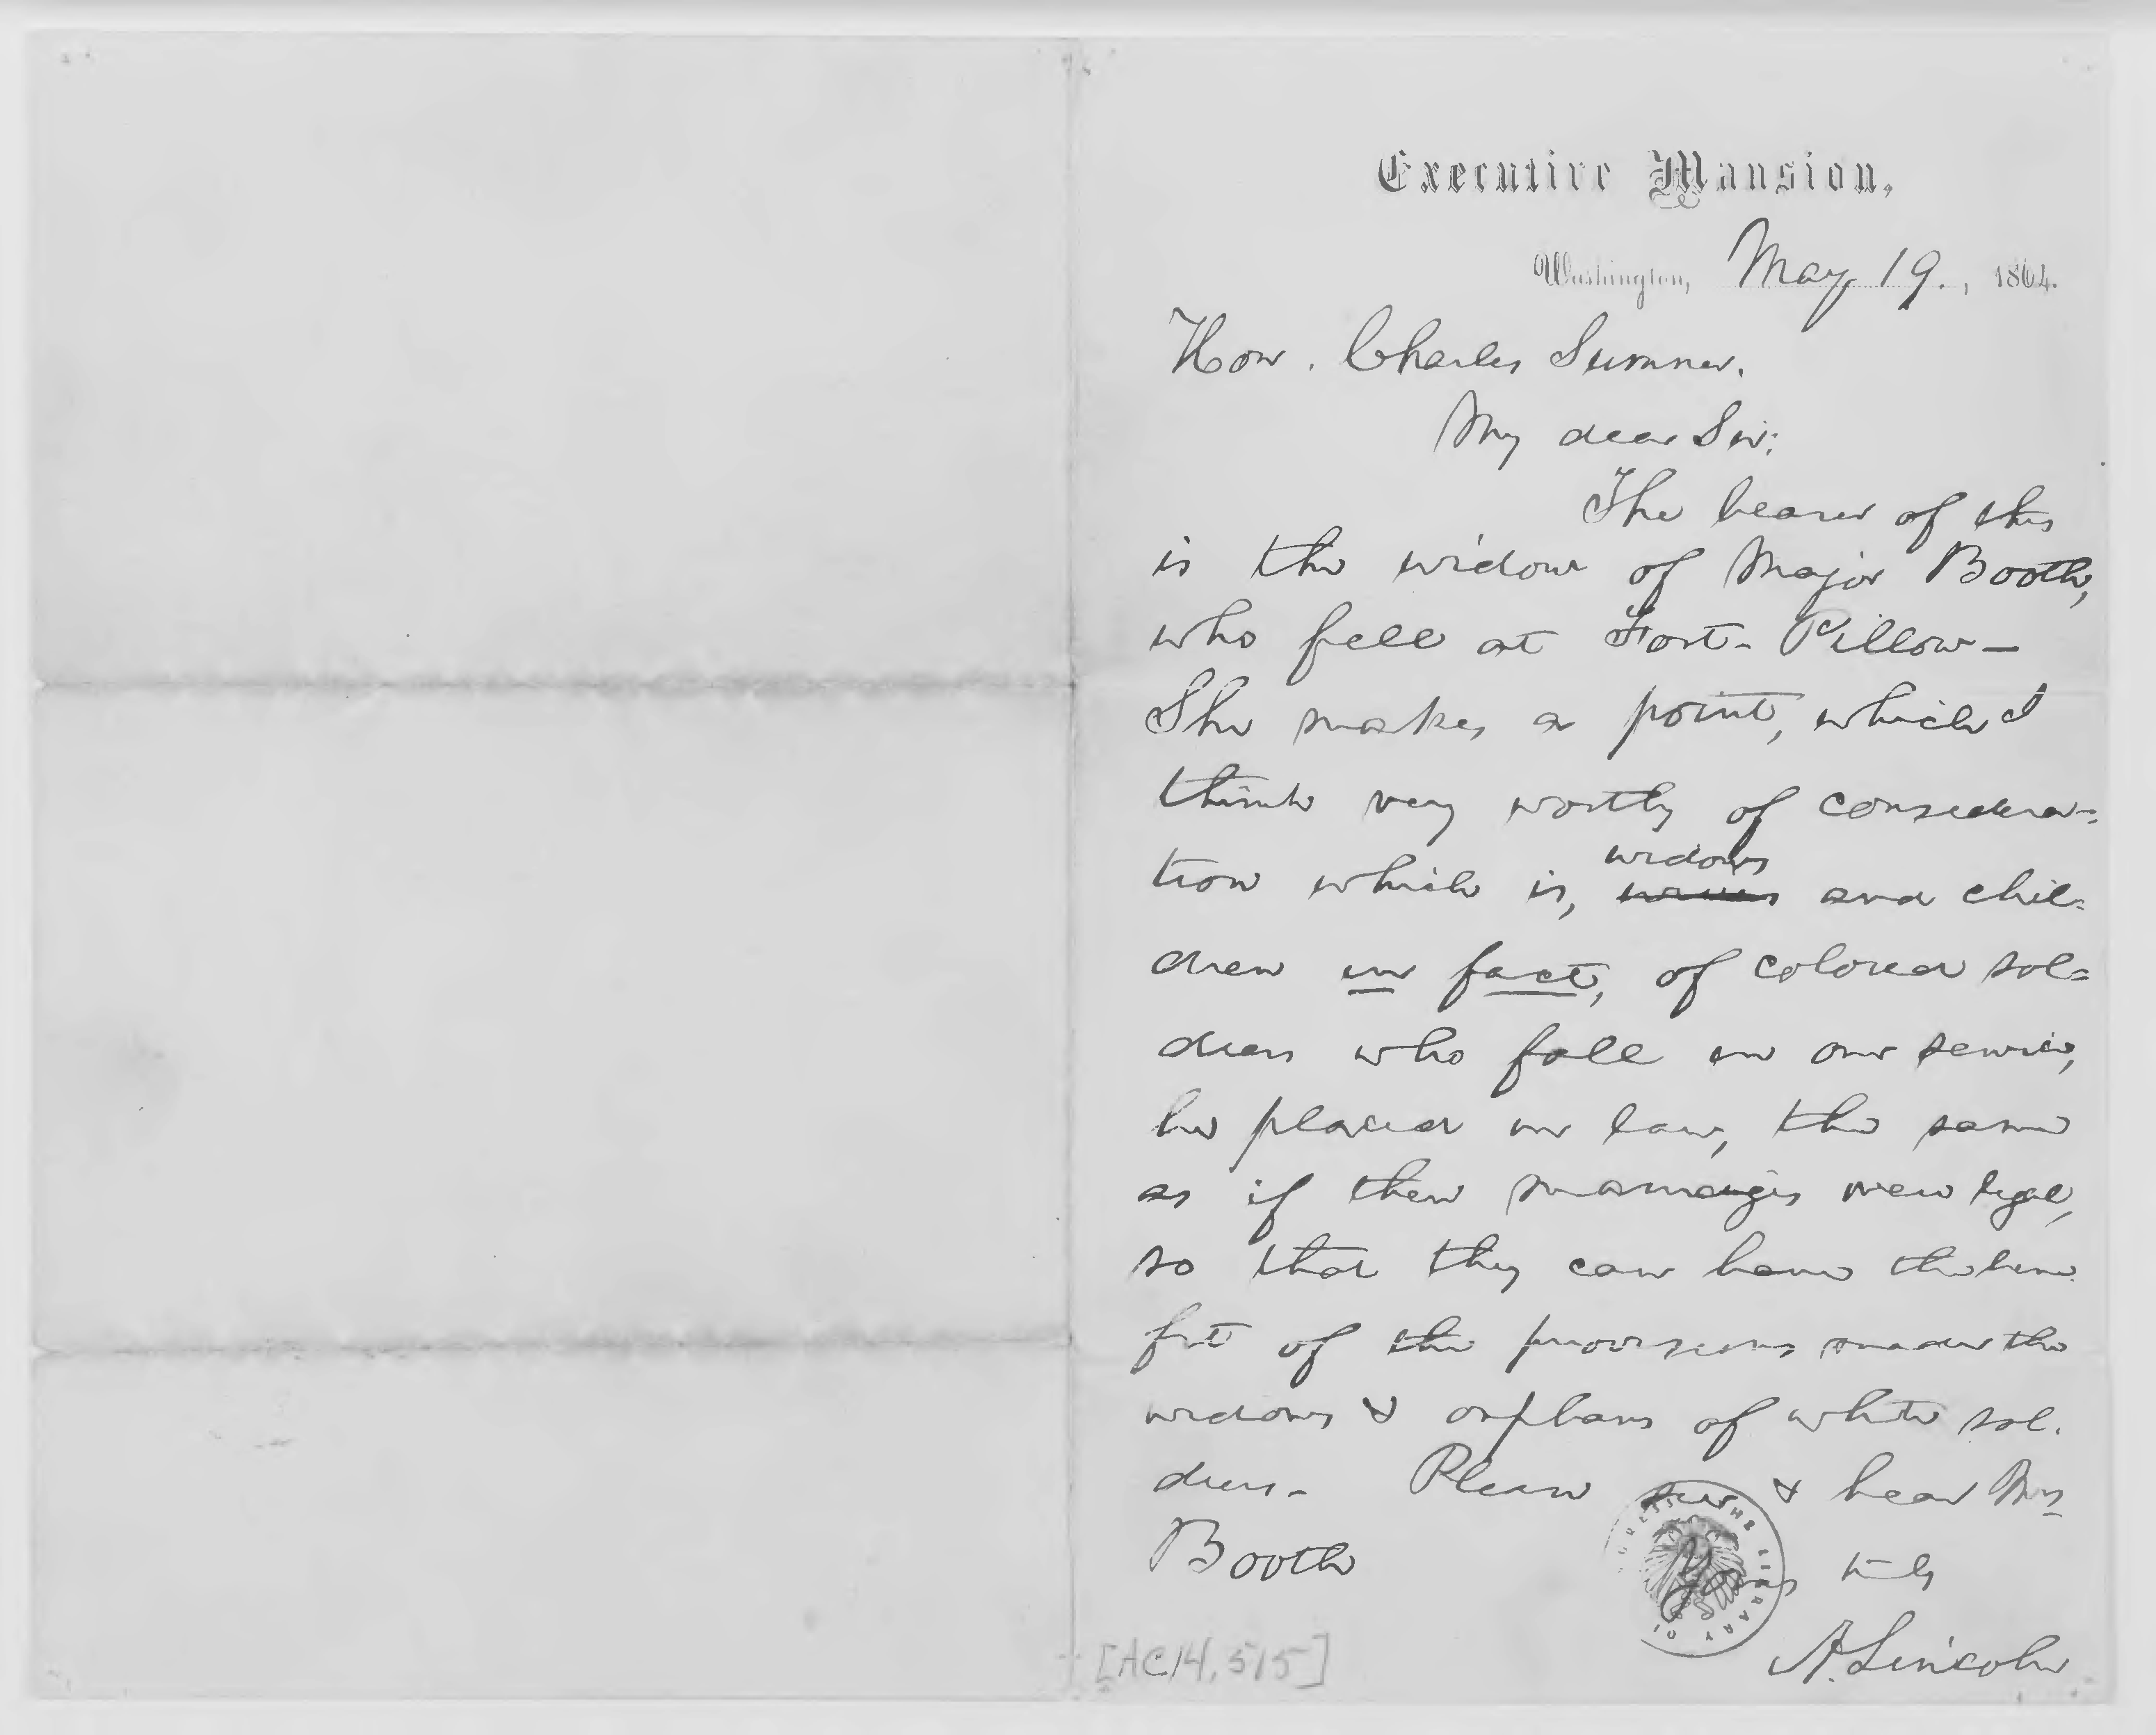 Executive Mansion,
Washington, May 19., 1864.
Hon. Charles Sumner.
My dear Sir:
The bearer of this
is the widow of Major Booth,
who fell at Fort-Pillow—
She makes a point, which I
think very worthy of considera=
widows
tion which is, and chil=
dren in fact, of colored sol=
diers who fall in our service,
be placed in law, the same
as if their marriages were legal,
so that they can have the bene
fit of the provisions made the
widows & orphans of white sol.
diers- Please see & hear Mrs
Booth
Yours truly
A. Lincoln
THE LIBRARY OF CONGRESS
[AC 14,515]